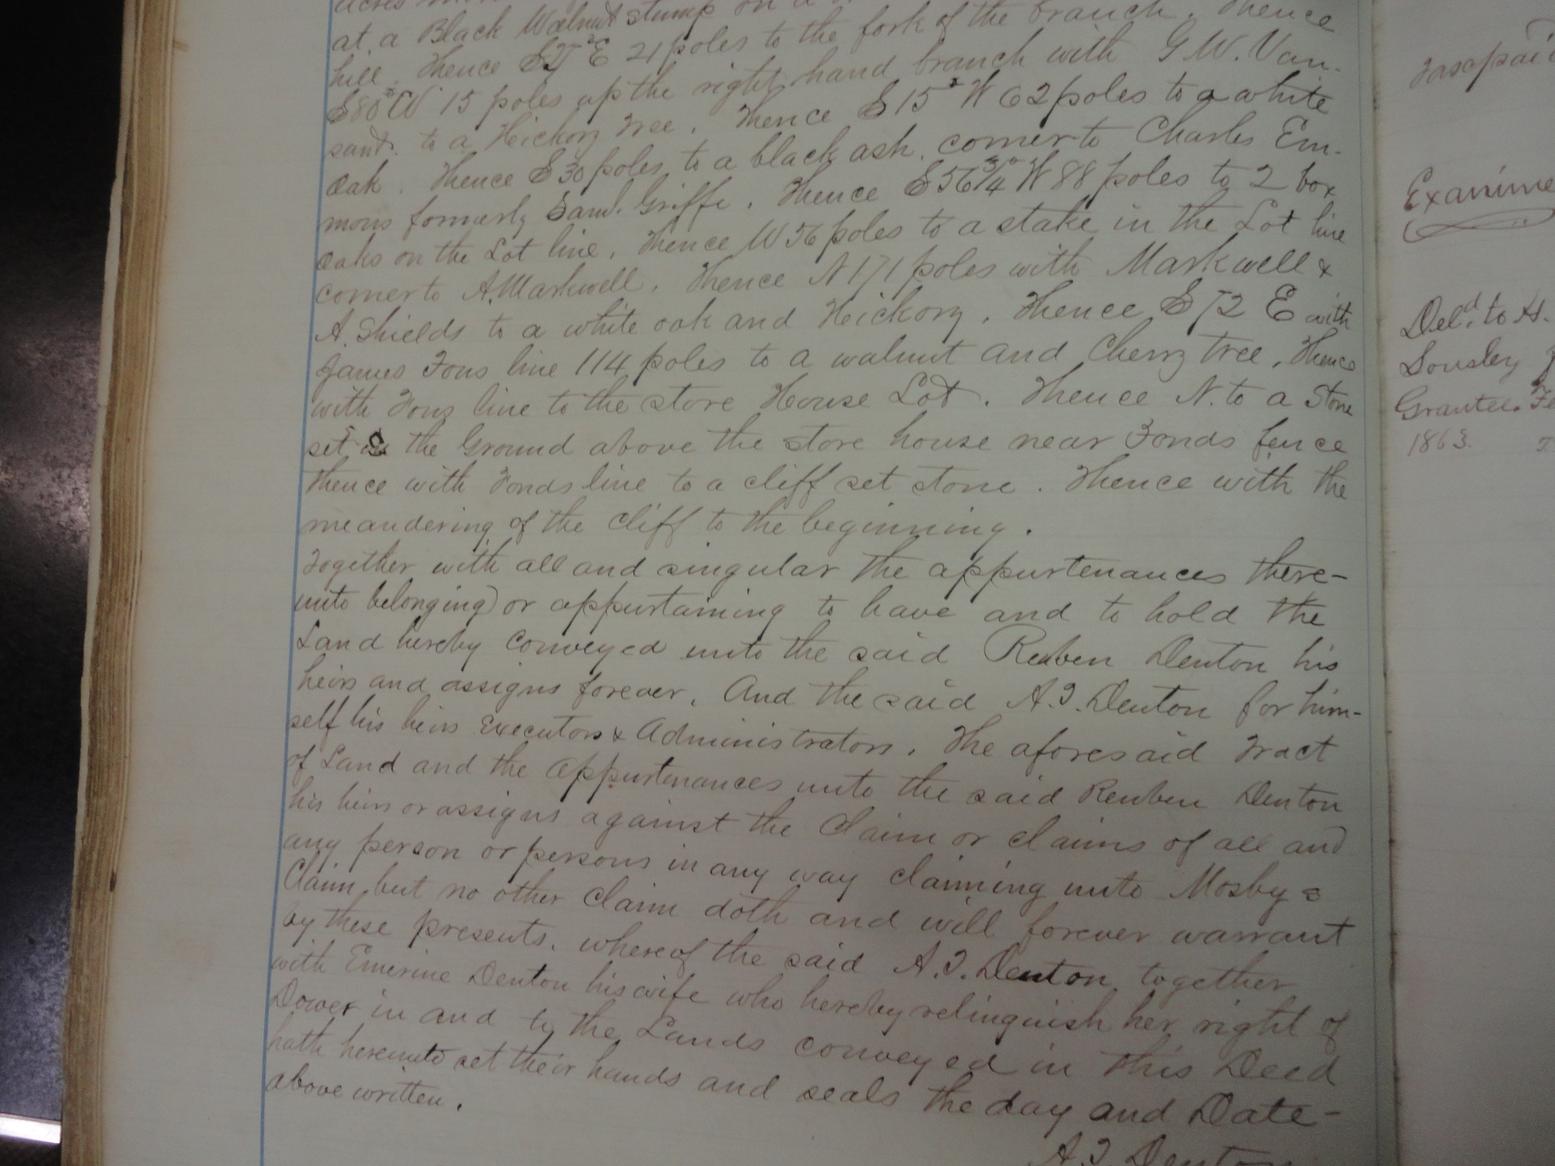 at a Black Walnut stump on a
hill. Thence S 25° E 21 poles to the fork of the branch. Thence
S 80° W 15 poles up the right hand branch with G. W. Van-
sant. to a Hickory Tree. Thence S 15° W 62 poles to a white
Oak. Thence S 30 poles to a black ash. corner to Charles Em-
mons formerly Saml. Griffe. Thence S 56 3/4° W 88 poles to 2 box
oaks on the Lot line. Thence W 56 poles to a stake in the Lot line
corner to A. Markwell. Thence N 171 poles with Markwell &
A. Shields to a white oak and Hickory. Thence S 72 E with
James Fons line 114 poles to a walnut and Cherry tree. Thence
with Fons line to the store House Lot. Thence N. to a Stone
set in the Ground above the store house near Fonds fence
thence with Fonds line to a cliff set stone. Thence with the
meandering of the cliff to the beginning.
Together with all and singular the appurtenances there-
unto belonging) or appurtaining to have and to hold the
Land hereby conveyed unto the said Reuben Denton his
heirs and assigns forever. And the said A. J. Denton for him-
self his heirs Executors & Administrators. The aforesaid Tract
of Land and the appurtenances unto the said Reuben Denton
his heirs or assigns against the Claim or claims of all and
any person or persons in any way claiming unto Mosby s
Claim, but no other Claim doth and will forever warrant
by these presents. whereof the said A. J. Denton, together
with Emerine Denton his wife who hereby relinquish her right of
Dower in and to the Lands conveyed in this Deed
hath hereunto set their hands and seals the day and Date-
above written.
A. J. Denton
Examine
Deld. to H.
Lousley
Grantee. Fe
1863.